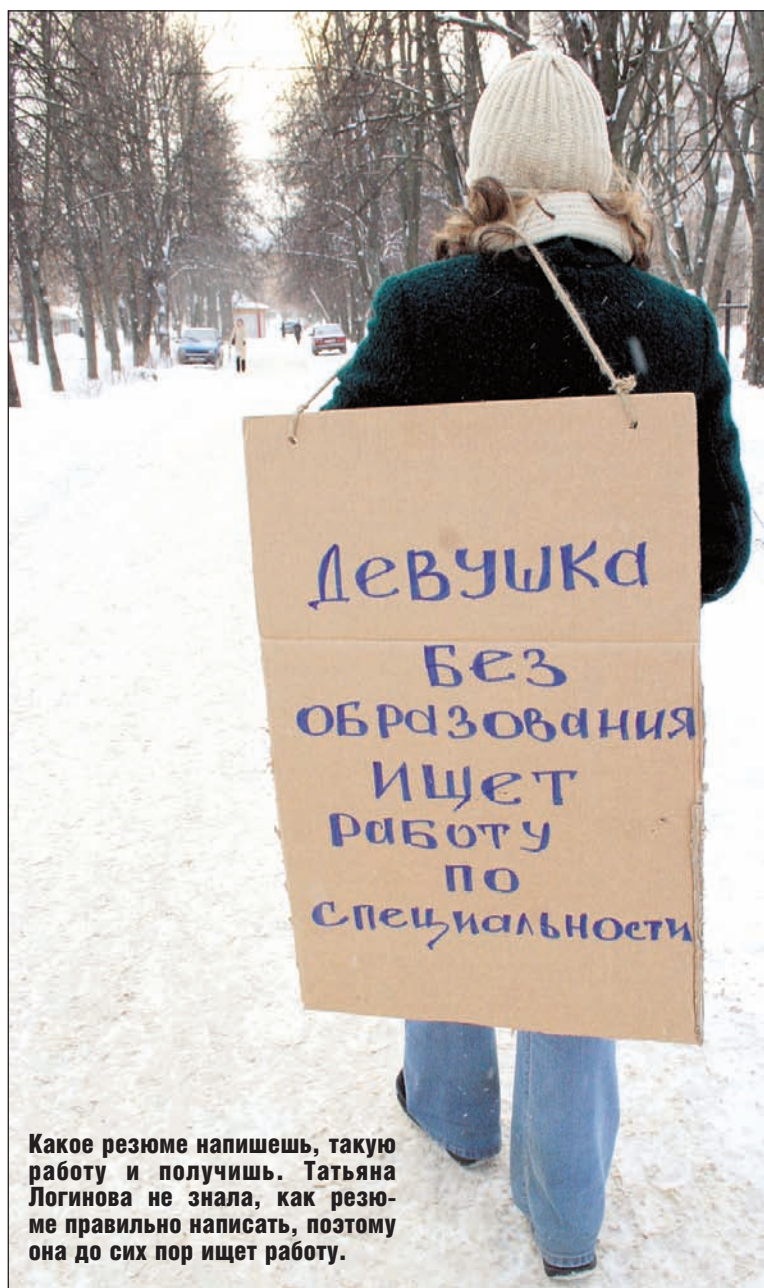 Девушка
без
образования
ищет
работу
по
специальности
Какое резюме напишешь, такую
работу и получишь. Татьяна
Логинова не знала, как резю-
ме правильно написать, поэтому
она до сих пор ищет работу.